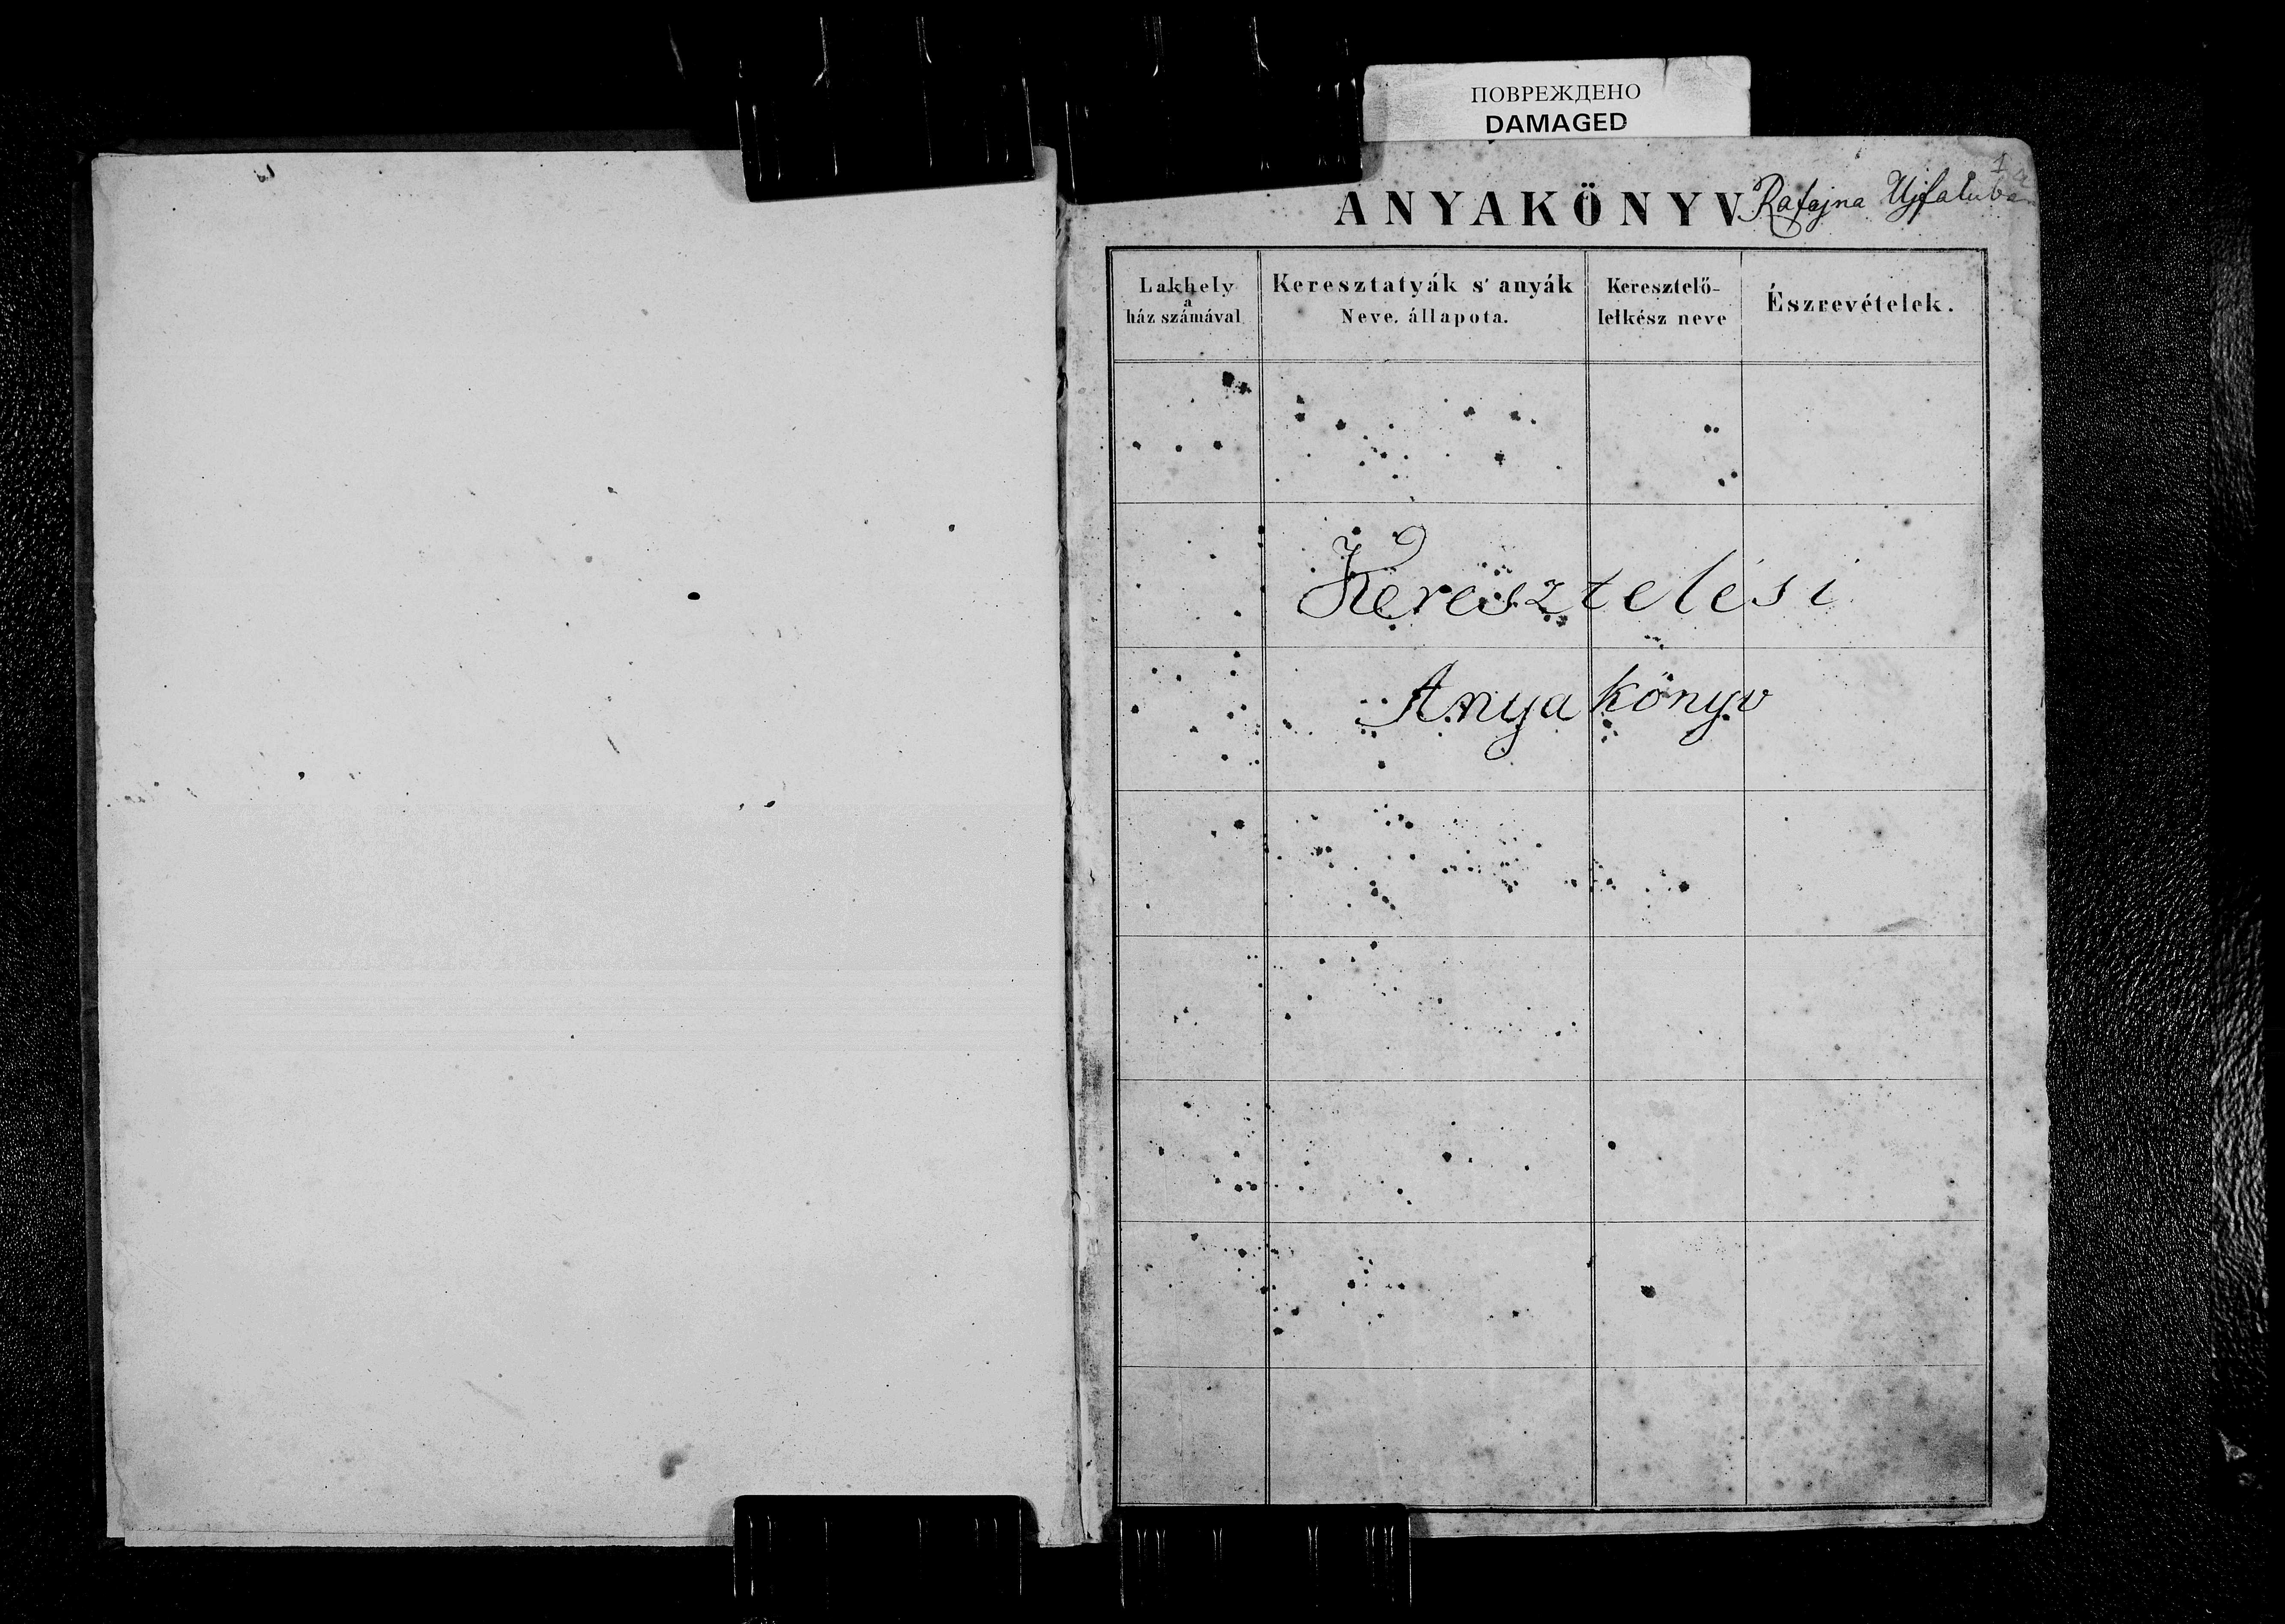 ПОВРЕЖДЕНО
DAMAGED
1
ANYAKÖNYV Rafajna Ujfaluban
Lakhely
a
ház számával
Keresztatyák s' anyák
Neve, állapota.
Keresztelő-
lelkész neve
Észrevételek.
Keresztelési
Anyakönyv